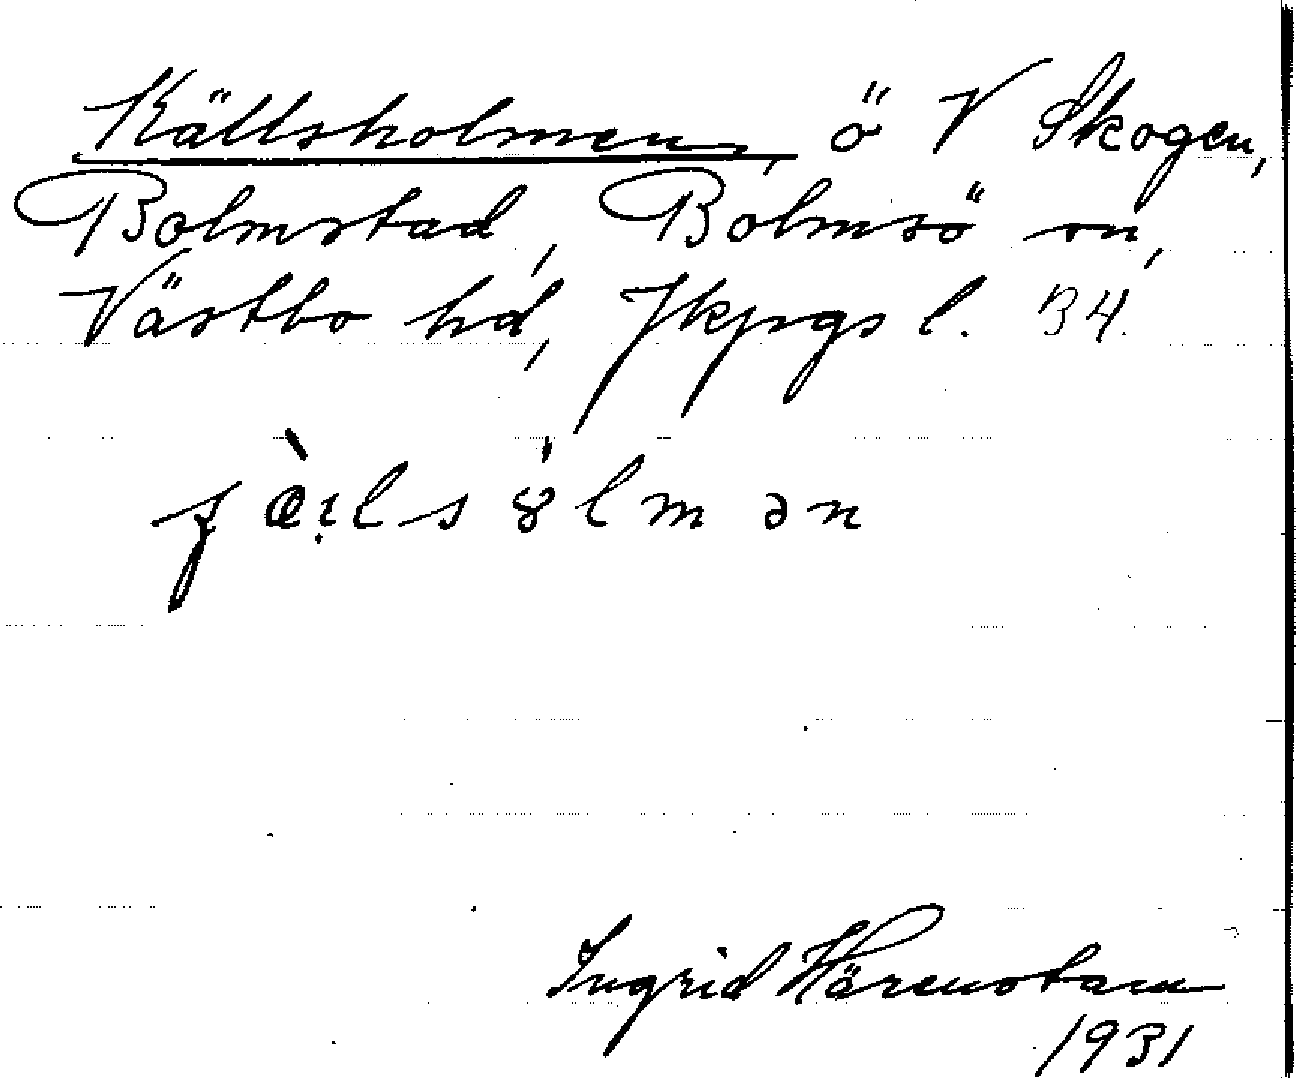 Källsholmen, ö V Skogen,
Bolmstad, Bolmsö sn,
Västbo hd, Jkpgs l. 34.
Ingrid Härenstam
1931